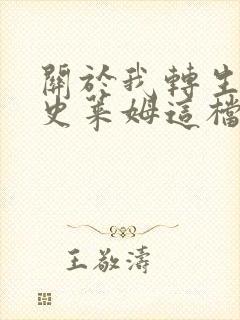 關於我轉生
史萊姆這檔
王敬濤